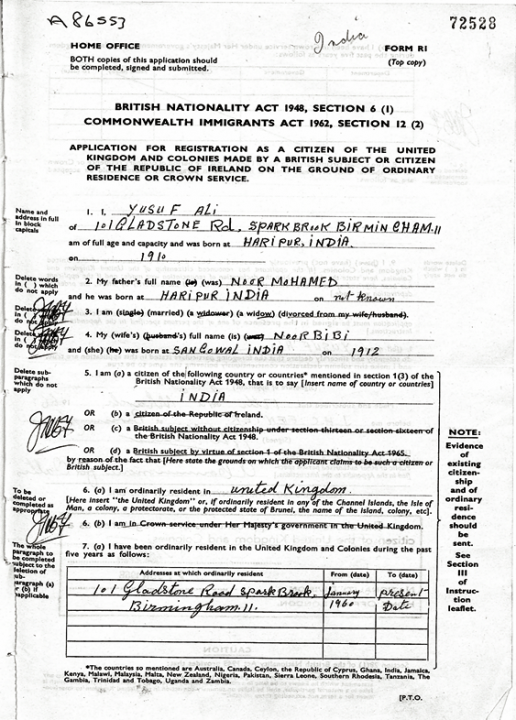 A 86553
72528
India
HOME OFFICE
FORM R1
BOTH copies of this application should
be completed, signed and submitted.
(Top copy)
BRITISH NATIONALITY ACT 1948, SECTION 6 (1)
COMMONWEALTH IMMIGRANTS ACT 1962, SECTION 12 (2)
APPLICATION FOR REGISTRATION AS A CITIZEN OF THE UNITED
KINGDOM AND COLONIES MADE BY A BRITISH SUBJECT OR CITIZEN
OF THE REPUBLIC OF IRELAND ON THE GROUND OF ORDINARY
RESIDENCE OR CROWN SERVICE.
Name and
address in full
in block
capitals
1. I, YUSUF ALI
of 101 GLADSTONE Rd, SPARKBROOK BIRMINGHAM.11
am of full age and capacity and was born at HARIPUR, INDIA.
on 1910
Delete words
in ( ) which
do not apply
2. My father's full name (is) (was) NOOR MOHAMED
and he was born at HARIPUR INDIA on not known
3. I am (single) (married) (a widower) (a widow) (divorced from my wife/husband).
4. My (wife's) (husband's) full name (is) (was) NOOR BIBI
and (she) (he) was born at SANGOWAL INDIA on 1912
Delete sub-
paragraphs
which do not
apply
5. I am (a) a citizen of the following country or countries* mentioned in section 1(3) of the
British Nationality Act 1948, that is to say [Insert name of country or countries]
INDIA
OR (b) a citizen of the Republic of Ireland.
OR (c) a British subject without citizenship under section thirteen or section sixteen of
the British Nationality Act 1948.
OR (d) a British subject by virtue of section 1 of the British Nationality Act 1965.
by reason of the fact that [Here state the grounds on which the applicant claims to be such a citizen or
British subject.]
NOTE:
Evidence
of
existing
citizen-
ship
and of
ordinary
resi-
dence
should
be
sent.
See
Section
III
of
Instruc-
tion
leaflet.
To be
deleted or
completed as
appropriate
6. (a) I am ordinarily resident in united Kingdom.
[Here insert "the United Kingdom" or, if ordinarily resident in any of the Channel Islands, the Isle of
Man, a colony, a protectorate, or the protected state of Brunei, the name of the Island, colony, etc.]
6. (b) I am in Crown service under Her Majesty's government in the United Kingdom.
The whole
paragraph to
be completed
subject to the
deletion of
sub-
paragraph (a)
or (b) if
applicable
7. (a) I have been ordinarily resident in the United Kingdom and Colonies during the past
five years as follows:
Addresses at which ordinarily resident From (date) To (date)
101 Gladstone Road Sparkbrook, January present
Birmingham 11. 1960 Date
*The countries so mentioned are Australia, Canada, Ceylon, the Republic of Cyprus, Ghana, India, Jamaica,
Kenya, Malawi, Malaysia, Malta, New Zealand, Nigeria, Pakistan, Sierra Leone, Southern Rhodesia, Tanzania, The
Gambia, Trinidad and Tobago, Uganda and Zambia.
[P.T.O.